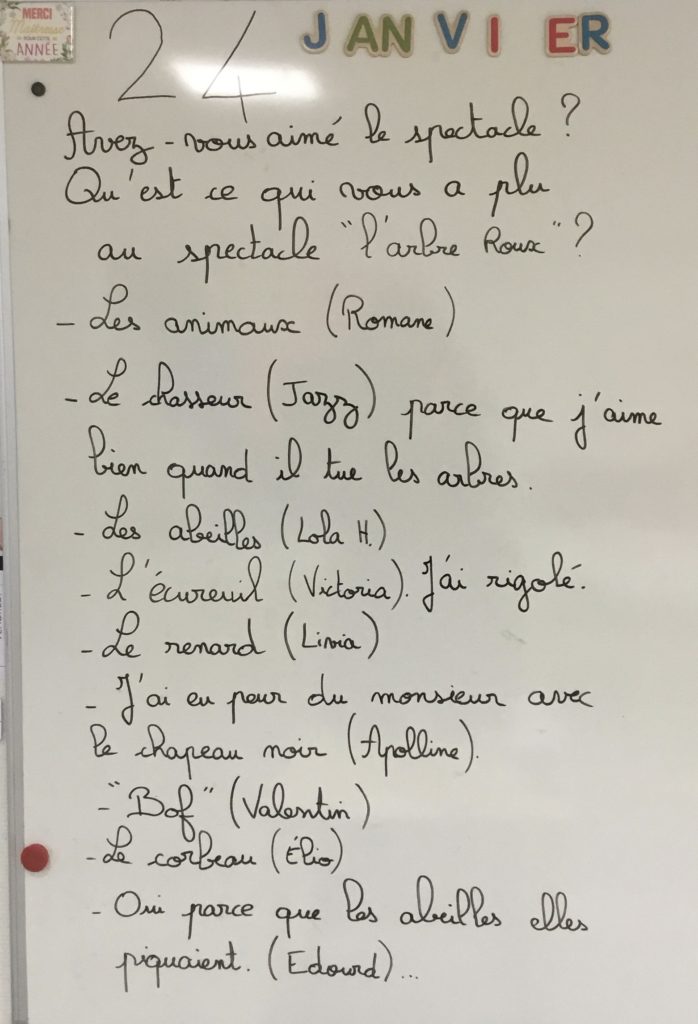 MERCI
Maîtresse
POUR CETTE
ANNÉE
24 JANVIER
Avez-vous aimé le spectacle ?
Qu'est ce qui vous a plu
au spectacle "l'arbre Roux" ?
- Les animaux (Romane)
- Le chasseur (Jazz) parce que j'aime
bien quand il tue les arbres.
- Les abeilles (Lola H.)
- L'écureuil (Victoria). J'ai rigolé.
- Le renard (Livia)
- J'ai eu peur du monsieur avec
le chapeau noir (Apolline).
- "Bof" (Valentin)
- Le corbeau (Élio)
- Oui parce que les abeilles elles
piquaient. (Edourd)...